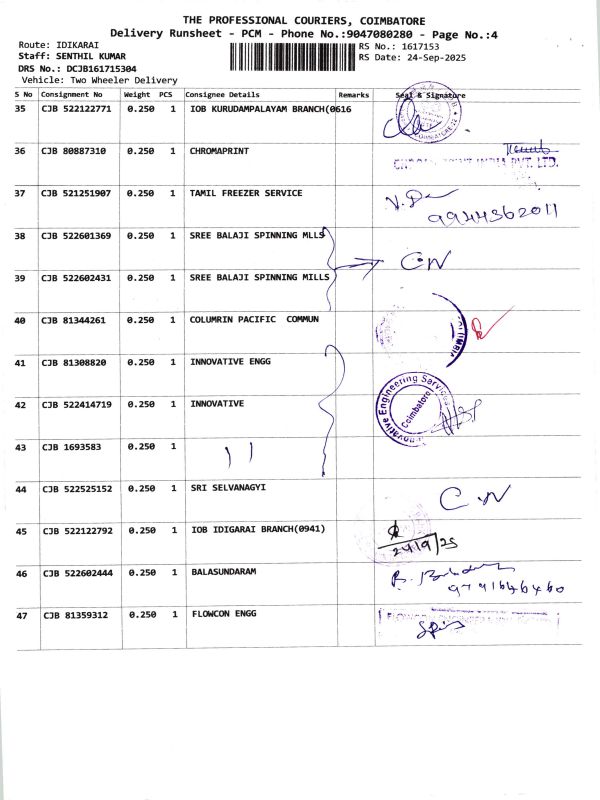 THE PROFESSIONAL COURIERS, COIMBATORE
Delivery Runsheet - PCM - Phone No.:9047080280 - Page No.:4
Route: IDIKARAI
RS No.: 1617153
Staff: SENTHIL KUMAR
RS Date: 24-Sep-2025
DRS No.: DCJB161715304
Vehicle: Two Wheeler Delivery
S No Consignment No Weight PCS Consignee Details Remarks Seal & Signature
35 CJB 522122771 0.250 1 IOB KURUDAMPALAYAM BRANCH(0616
36 CJB 80887310 0.250 1 CHROMAPRINT
CHROMAPRINT INDIA PVT. LTD.
37 CJB 521251907 0.250 1 TAMIL FREEZER SERVICE
9944362011
38 CJB 522601369 0.250 1 SREE BALAJI SPINNING MLLS
39 CJB 522602431 0.250 1 SREE BALAJI SPINNING MILLS
40 CJB 81344261 0.250 1 COLUMRIN PACIFIC COMMUN
41 CJB 81308820 0.250 1 INNOVATIVE ENGG
Innovative Engineering Services
Coimbatore
42 CJB 522414719 0.250 1 INNOVATIVE
43 CJB 1693583 0.250 1 
44 CJB 522525152 0.250 1 SRI SELVANAGYI
45 CJB 522122792 0.250 1 IOB IDIGARAI BRANCH(0941)
24/9/25
46 CJB 522602444 0.250 1 BALASUNDARAM
47 CJB 81359312 0.250 1 FLOWCON ENGG